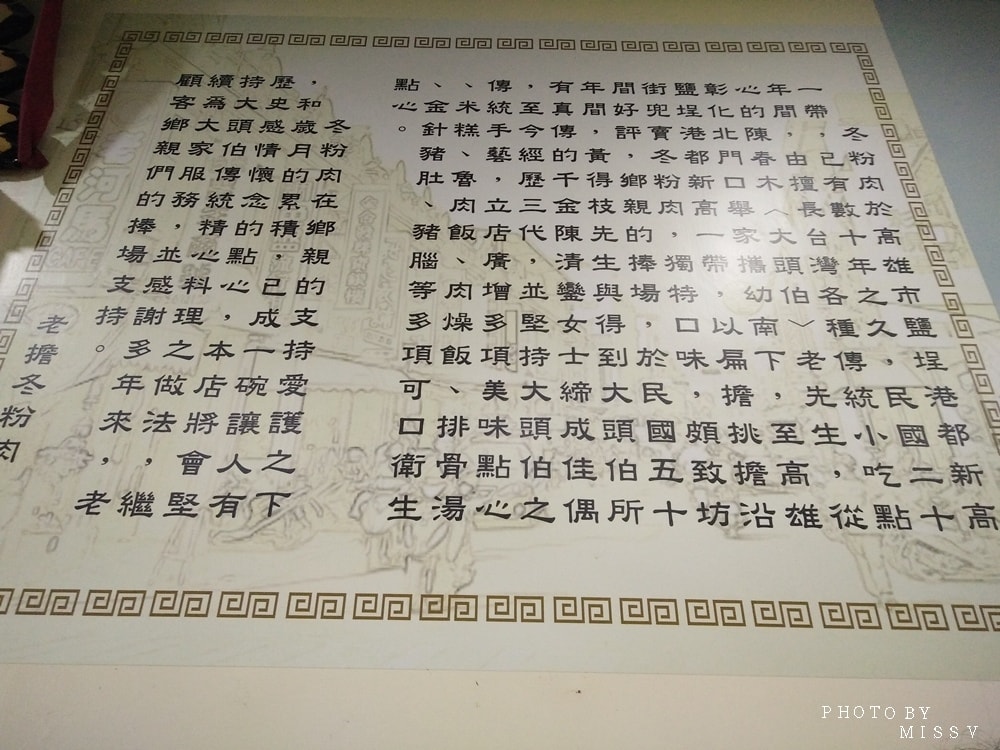 冬粉肉於高雄市鹽埕港都新高
一帶，已有數十年之久，民國二十
年間，由擅長台灣各種傳統小吃點
心的陳春木（大頭伯）老先生，從
彰化北門口舉家攜幼南下，至高雄
鹽埕港都新高一帶，以扁擔挑擔沿
街兜賣冬粉肉，獨特口味，頗致坊
間好評，鄉親的捧場，於民國五十
年間，黃得枝先生與得到大頭伯所
有真傳的千金陳清鑾女士締成佳偶
，至今經歷三代，並堅持大頭伯之
傳統手藝，立店廣增多項美味點心
、米糕、魯肉飯、肉燥飯、排骨湯
、金針豬肚、豬腦等多項可口衛生
點心。
冬粉肉在鄉親的支持愛護之下
，和歲月的累積，已成一碗讓人有
歷史感情懷念的點心，本店將會堅
持大頭伯傳統精心料理之做法，繼
續為大家服務，並感謝多年來，老
顧客鄉親們的捧場支持。
老擔冬粉肉
PHOTO BY
MISS V